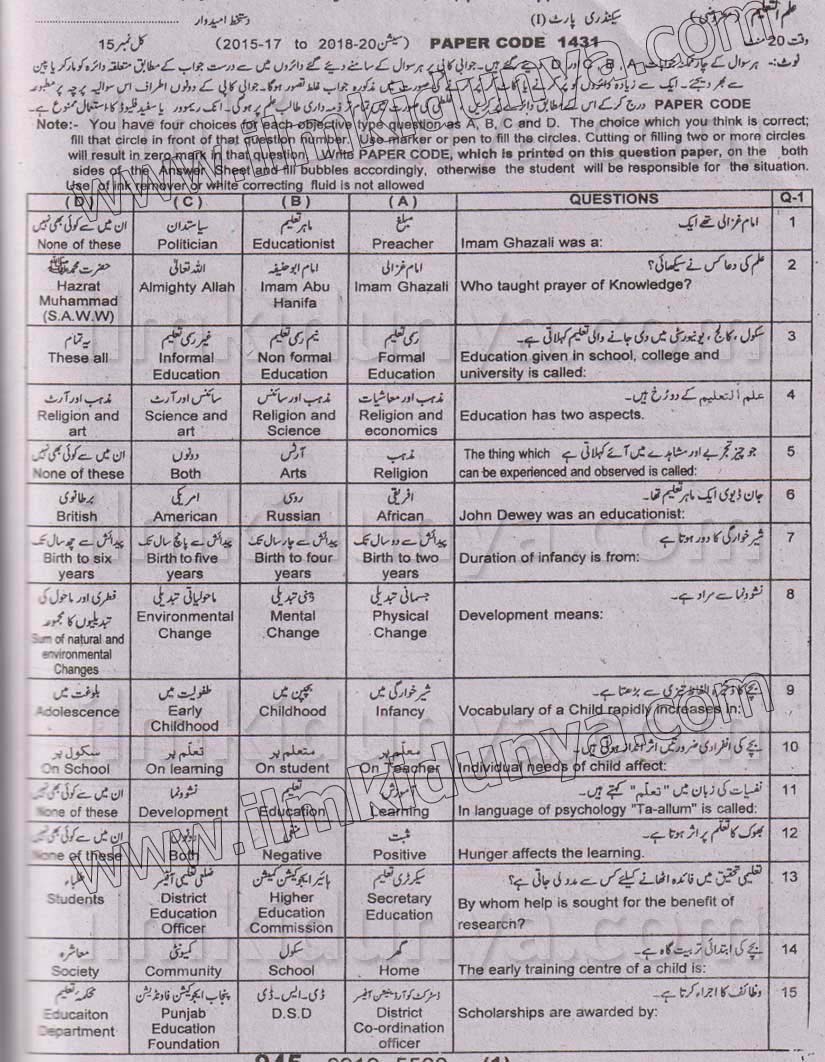 علم التعلیم (معروضی) سیکنڈری پارٹ (I) دستخط امیدوار
وقت 20 منٹ PAPER CODE 1431 (سیشن 2018-20 to 2015-17) کل نمبر 15
نوٹ:۔ ہر سوال کے چار ممکنہ جوابات A ، B ، C اور D دیئے گئے ہیں۔ جوابی کاپی پر ہر سوال کے سامنے دیئے گئے دائروں میں سے درست جواب کے مطابق متعلقہ دائرہ کو مارکر یا پین
سے بھر دیجئے۔ ایک سے زیادہ دائروں کو پر کرنے یا کاٹ کر پر کرنے کی صورت میں مذکورہ جواب غلط تصور ہوگا۔ جوابی کاپی کے دونوں اطراف اس سوالیہ پرچہ پر مطبوعہ
PAPER CODE درج کر کے اس کے مطابق دائرے پُر کریں، غلطی کی صورت میں تمام تر ذمہ داری طالب علم پر ہوگی۔ انک ریموور یا سفید فلیوڈ کا استعمال ممنوع ہے۔
Note:- You have four choices for each objective type question as A, B, C and D. The choice which you think is correct;
fill that circle in front of that question number. Use marker or pen to fill the circles. Cutting or filling two or more circles
will result in zero mark in that question. Write PAPER CODE, which is printed on this question paper, on the both
sides of the Answer Sheet and fill bubbles accordingly, otherwise the student will be responsible for the situation.
Use of ink remover or white correcting fluid is not allowed
(D) (C) (B) (A) QUESTIONS Q-1
ان میں سے کوئی بھی نہیں سیاستدان ماہر تعلیم مبلغ امام غزالی تھے ایک 1
None of these Politician Educationist Preacher Imam Ghazali was a:
حضرت محمد ﷺ اللہ تعالیٰ امام ابو حنیفہ امام غزالی علم کی دعا کس نے سیکھائی؟ 2
Hazrat Almighty Allah Imam Abu Imam Ghazali Who taught prayer of Knowledge?
Muhammad Hanifa
(S.A.W.W)
یہ تمام غیر رسمی تعلیم نیم رسمی تعلیم رسمی تعلیم سکول ، کالج ، یونیورسٹی میں دی جانے والی تعلیم کہلاتی ہے۔ 3
These all Informal Non formal Formal Education given in school, college and
Education Education Education university is called:
مذہب اور آرٹ سائنس اور آرٹ مذہب اور سائنس مذہب اور معاشیات علم التعلیم کے دو رخ ہیں۔ 4
Religion and Science and Religion and Religion and Education has two aspects.
art art Science economics
ان میں سے کوئی بھی نہیں دونوں آرٹس مذہب The thing which جو چیز تجربے اور مشاہدے میں آئے کہلاتی ہے 5
None of these Both Arts Religion can be experienced and observed is called:
برطانوی امریکی روسی افریقی جان ڈیوی ایک ماہر تعلیم تھا۔ 6
British American Russian African John Dewey was an educationist:
پیدائش سے چھ سال تک پیدائش سے پانچ سال تک پیدائش سے چار سال تک پیدائش سے دو سال تک شیر خوارگی کا دور ہوتا ہے 7
Birth to six Birth to five Birth to four Birth to two Duration of infancy is from:
years years years years
فطری اور ماحول کی ماحولیاتی تبدیلی ذہنی تبدیلی جسمانی تبدیلی نشوونما سے مراد ہے۔ 8
تبدیلیوں کا مجموعہ Environmental Mental Physical Development means:
Sum of natural and Change Change Change
environmental
Changes
بلوغت میں طفولیت میں بچپن میں شیر خوارگی میں بچے کا ذخیرہ الفاظ تیزی سے بڑھتا ہے۔ 9
Adolescence Early Childhood Infancy Vocabulary of a Child rapidly increases in:
Childhood
سکول پر تعلّم پر متعلم پر معلّم پر بچے کی انفرادی ضرورتیں اثر انداز ہوتی ہیں۔ 10
On School On learning On student On Teacher Individual needs of child affect:
ان میں سے کوئی بھی نہیں نشوونما تعلیم آموزش نفسیات کی زبان میں "تعلّم" کہتے ہیں۔ 11
None of these Development Education Learning In language of psychology "Ta-allum" is called:
ان میں سے کوئی بھی نہیں دونوں منفی مثبت بھوک کا تعلّم پر اثر ہوتا ہے۔ 12
None of these Both Negative Positive Hunger affects the learning.
طلباء ضلعی تعلیمی آفیسر ہائیر ایجوکیشن کمیشن سیکرٹری تعلیم تعلیمی تحقیق میں فائدہ اٹھانے کیلئے کس سے مدد لی جاتی ہے؟ 13
Students District Higher Secretary By whom help is sought for the benefit of
Education Education Education research?
Officer Commission
معاشرہ کمیونٹی سکول گھر بچے کی ابتدائی تربیت گاہ ہے۔ 14
Society Community School Home The early training centre of a child is:
محکمہ تعلیم پنجاب ایجوکیشن فاونڈیشن ڈی۔ایس۔ڈی ڈسٹرکٹ کوآرڈینیشن آفیسر وظائف کا اجراء کرتا ہے۔ 15
Educaiton Punjab D.S.D District Scholarships are awarded by:
Department Education Co-ordination
Foundation officer
www.ilmkidunya.com
www.ilmkidunya.com
ilmkidunya.com
ilmkidunya.com
ilmkidunya.com
ilmkidunya.com
ilmkidunya.com